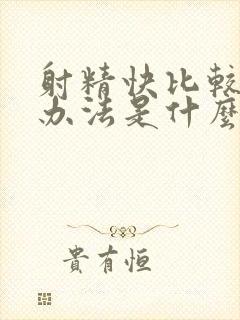 射精快比較
办法是什麼
貴有恒